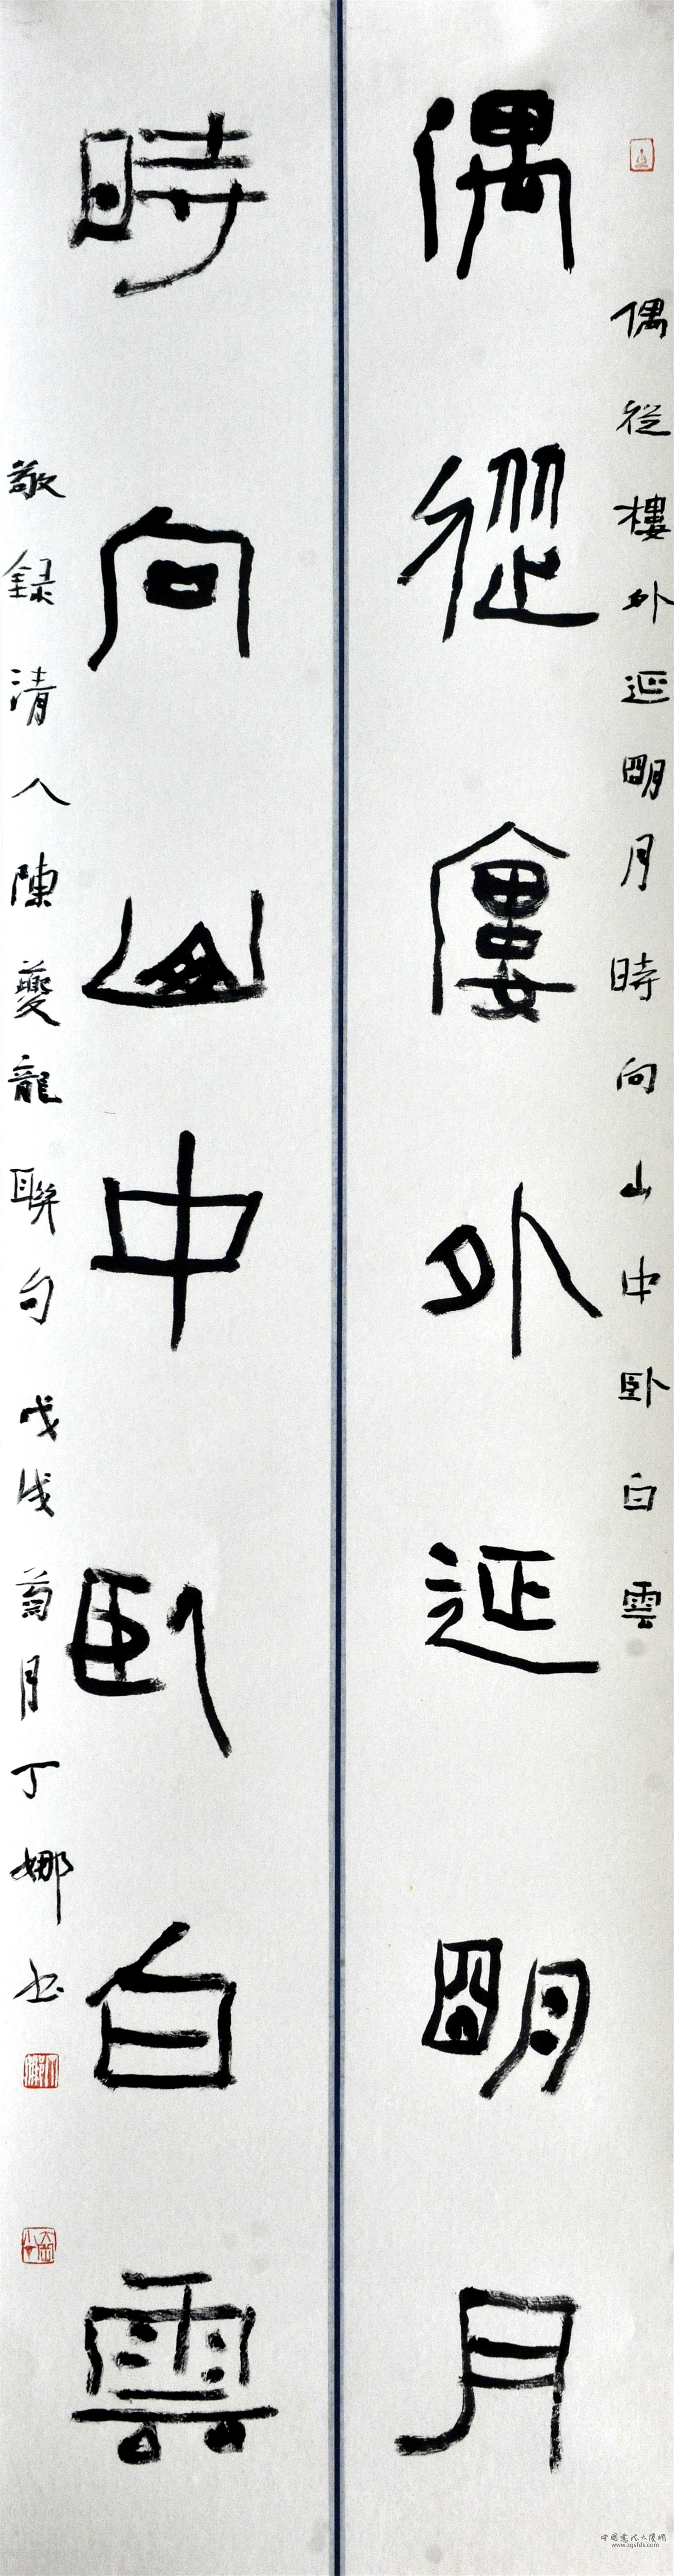 偶從樓外延明月時向山中卧白雲
偶從廔外延朙月
時向山中卧白雲
敬録清人陳夔龍聯句戊戌菊月丁娜书
中国书法大厦网
www.zgsfds.com